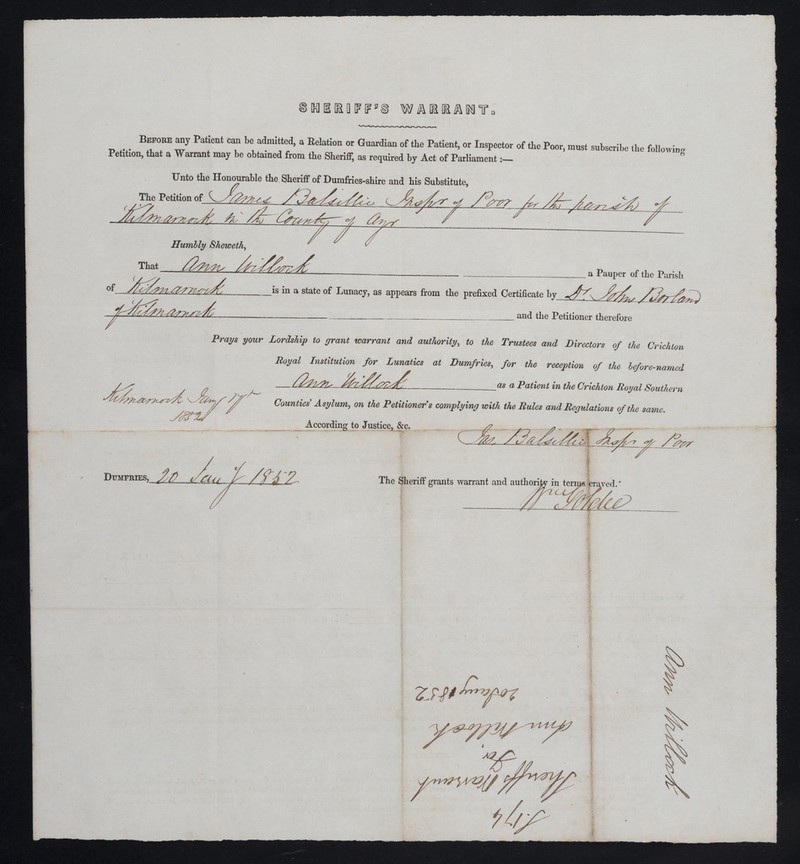 SHERIFF'S WARRANT.
BEFORE any Patient can be admitted, a Relation or Guardian of the Patient, or Inspector of the Poor, must subscribe the following
Petition, that a Warrant may be obtained from the Sheriff, as required by Act of Parliament :—
Unto the Honourable the Sheriff of Dumfries-shire and his Substitute,
The Petition of James Balsillie Inspr of Poor for the parish of
Kilmarnock in the County of Ayr
Humbly Sheweth,
That Ann Willock a Pauper of the Parish
of Kilmarnock is in a state of Lunacy, as appears from the prefixed Certificate by Dr. John Borland
of Kilmarnock and the Petitioner therefore
Prays your Lordship to grant warrant and authority, to the Trustees and Directors of the Crichton
Royal Institution for Lunatics at Dumfries, for the reception of the before-named
Ann Willock as a Patient in the Crichton Royal Southern
Counties' Asylum, on the Petitioner's complying with the Rules and Regulations of the same.
Kilmarnock Jany 17th
1852
According to Justice, &c.
Jas. Balsillie Inspr of Poor
DUMFRIES, 20 Jany 1852 The Sheriff grants warrant and authority in terms craved.
Wm Goldie
Ann Willock
S. 174
Sheriffs Warrant
for
Ann Willock
20 Jany 1852